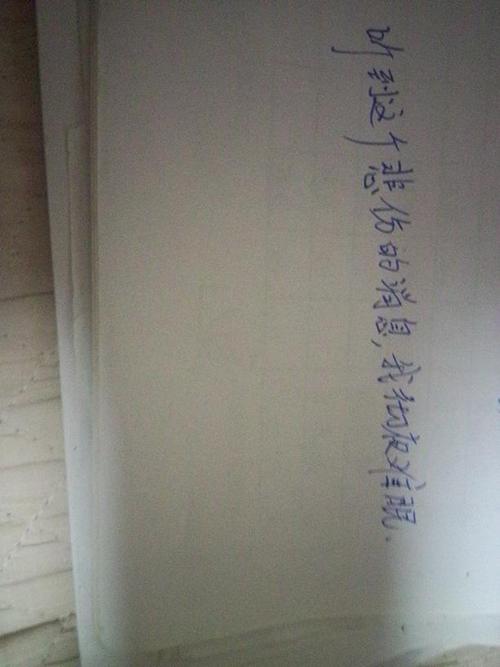 听到这个悲伤的消息,我彻夜难眠.